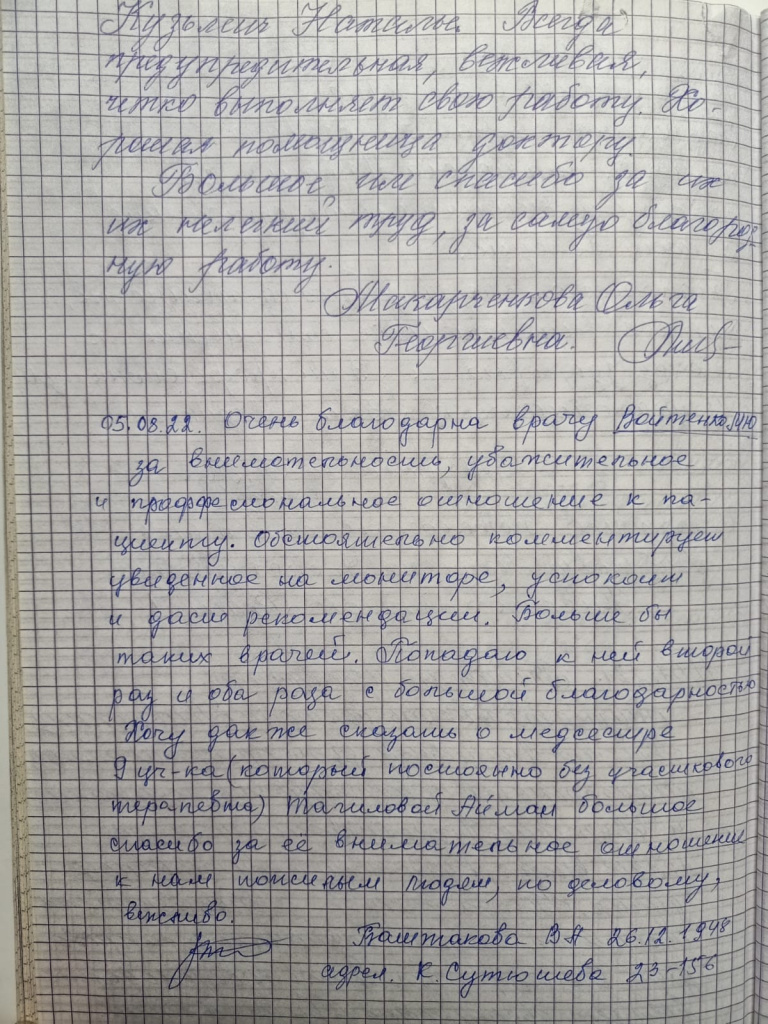 Кузьмич Наталье. Всегда
предупредительная, вежливая,
четко выполняет свою работу. Хо-
рошая помощница доктору.
Большое им спасибо за их
их нелегкий труд, за самую благород-
ную работу.
Макарченкова Ольга
Георгиевна.
05.08.22. Очень благодарна врачу Войтенко
за внимательность, уважительное
и проффесиональное отношение к па-
циенту. Обстоятельно комментирует
увиденное на мониторе, успокоит
и даст рекомендации. Больше бы
таких врачей. Попадаю к ней второй
раз и оба раза с большой благодарностью
Хочу также сказать о медсестре
9 уч-ка (который постоянно без участкового
терапевта) Тагиловой Айман большое
спасибо за её внимательное отношение
к нам пожилым людям, по деловому,
вежливо.
Баштакова В А 26.12.1948
адрес. К. Сутюшева 23-156